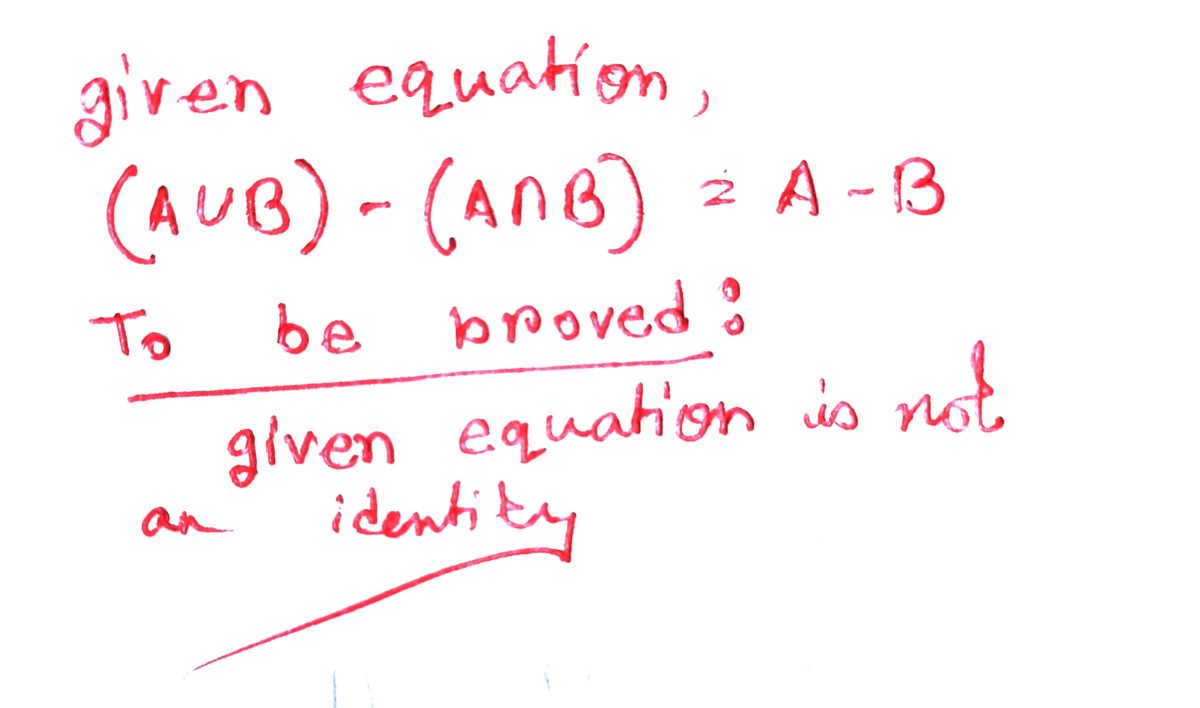 given equation,
(A∪B) - (A∩B) = A - B
To be proved:
given equation is not
an identity